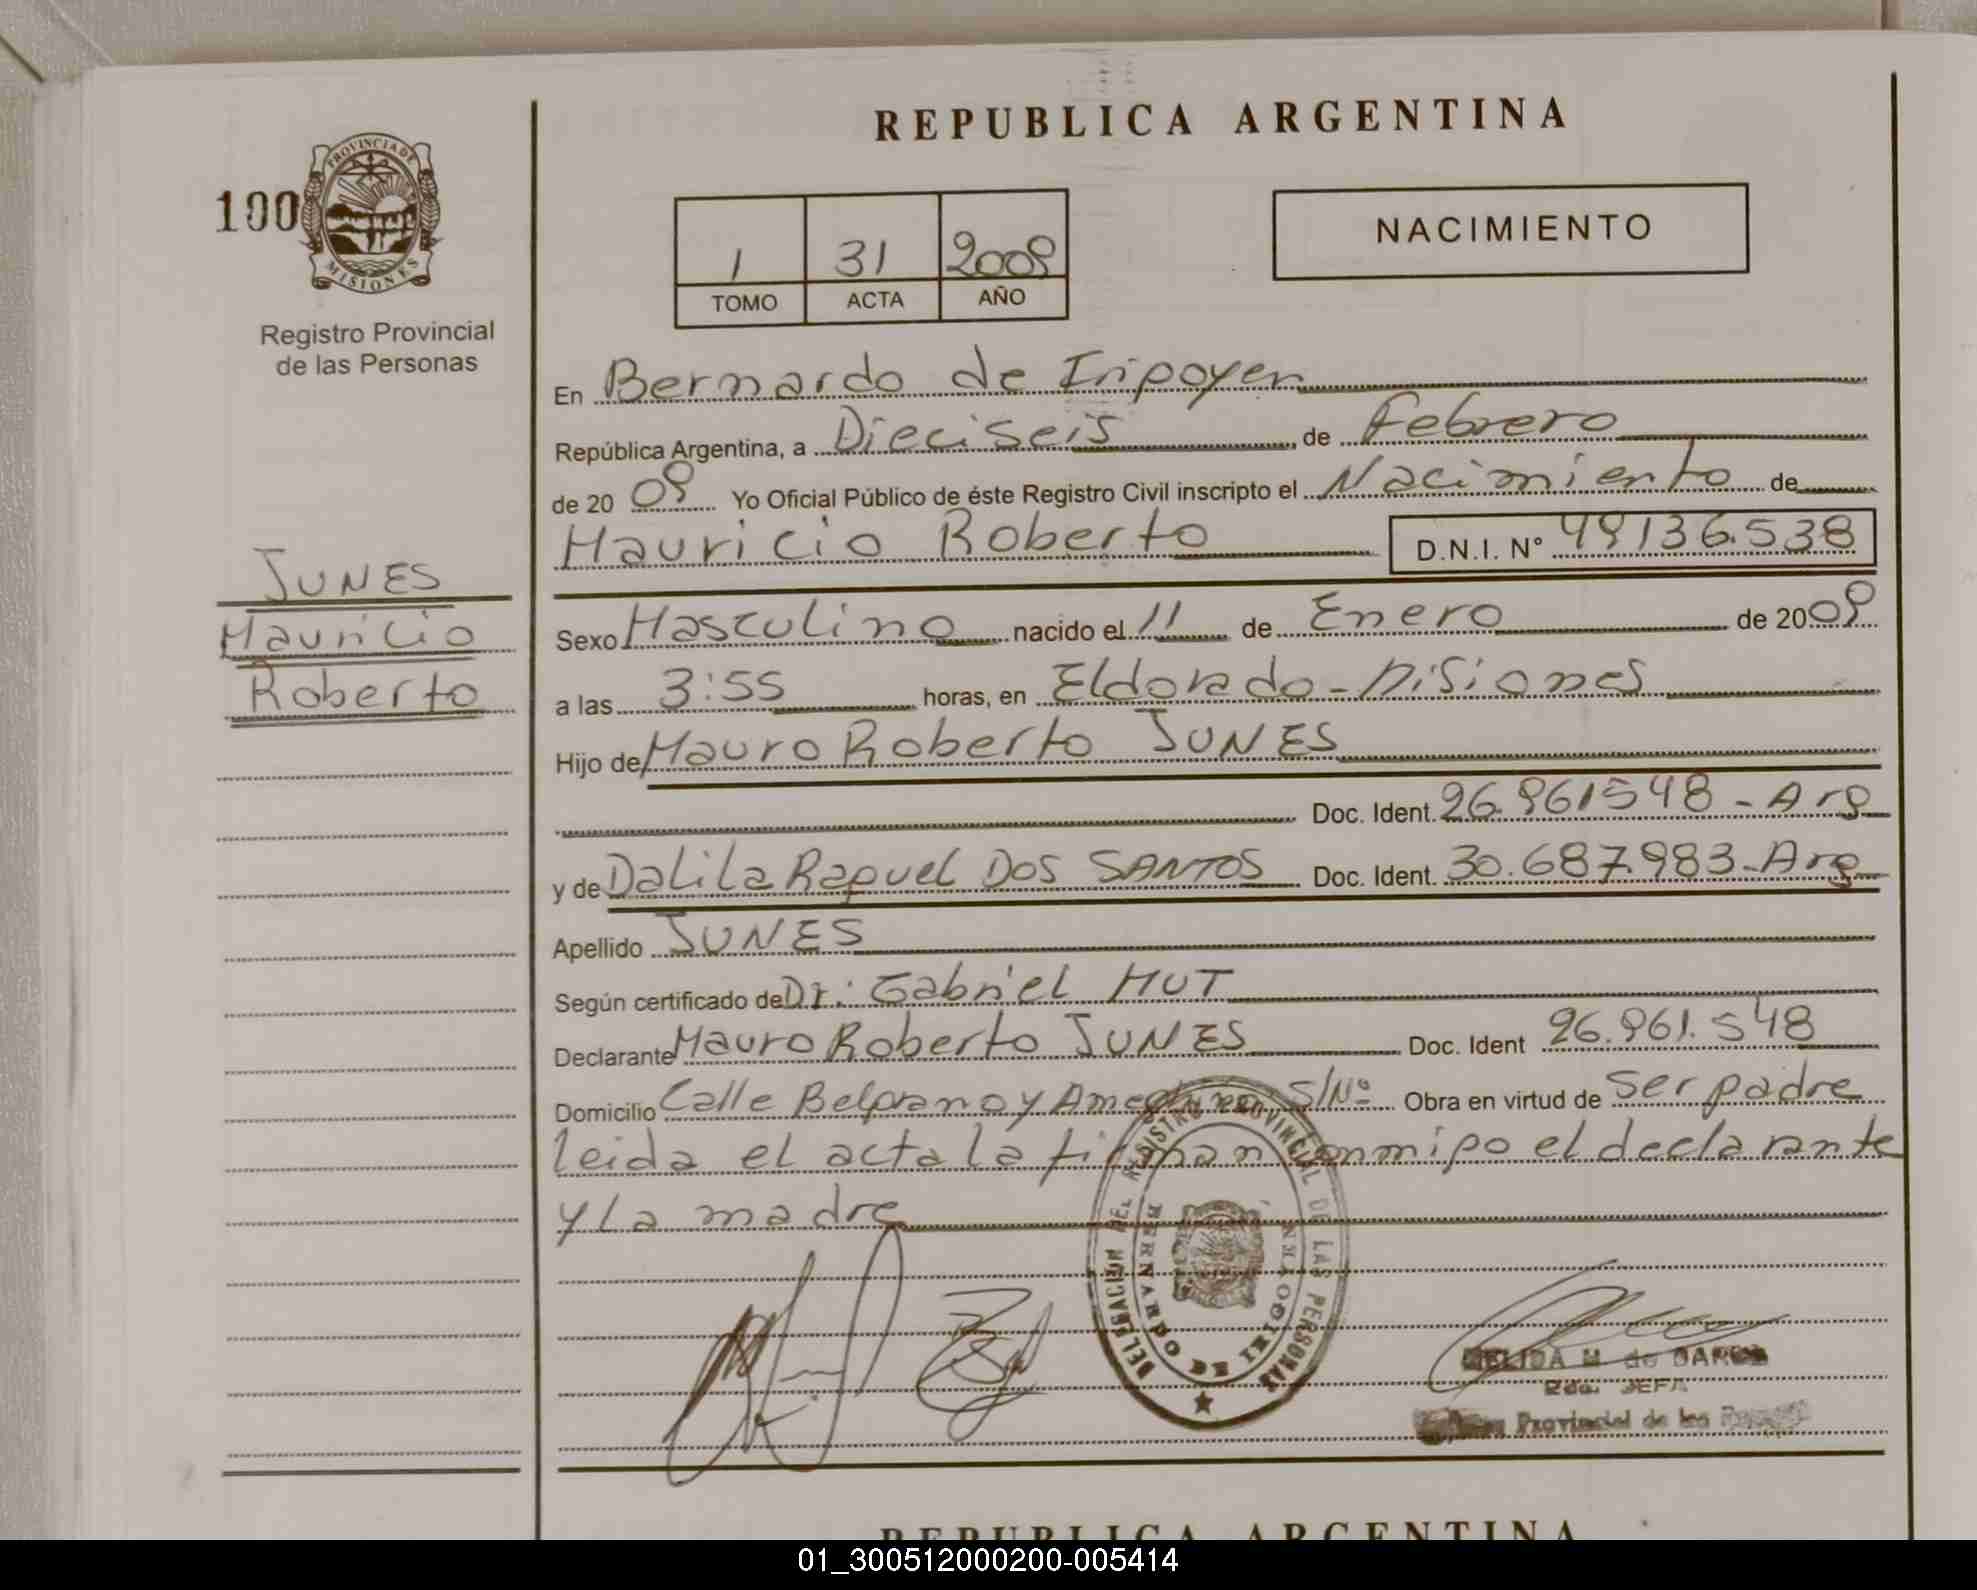 REPUBLICA ARGENTINA
100
PROVINCIA DE
MISIONES
Registro Provincial
de las Personas
1 31 2009
TOMO ACTA AÑO
NACIMIENTO
En Bernardo de Iripoyen
República Argentina, a Dieciseis de Febrero
de 20 09 Yo Oficial Público de éste Registro Civil inscripto el Nacimiento de
Mauricio Roberto D.N.I. Nº 49136.538
JUNES
Mauricio
Roberto
Sexo Masculino nacido el 11 de Enero de 2009
a las 3:55 horas, en Eldorado - Misiones
Hijo de Mauro Roberto JUNES
Doc. Ident. 26.961548 - Arg
y de Dalila Raquel DOS SANTOS Doc. Ident. 30.687.983 - Arg
Apellido JUNES
Según certificado de Dr: Gabriel HUT
Declarante Mauro Roberto JUNES Doc. Ident 26.961.548
Domicilio Calle Belgrano y Ameghino S/Nº Obra en virtud de ser padre
leida el acta la firman conmigo el declarante
y la madre
DELEGACION DEL REGISTRO PROVINCIAL DE LAS PERSONAS
BERNARDO DE IRIGOYEN
M. de
JEFA
Provincial de las
REPUBLICA ARGENTINA
01_300512000200-005414